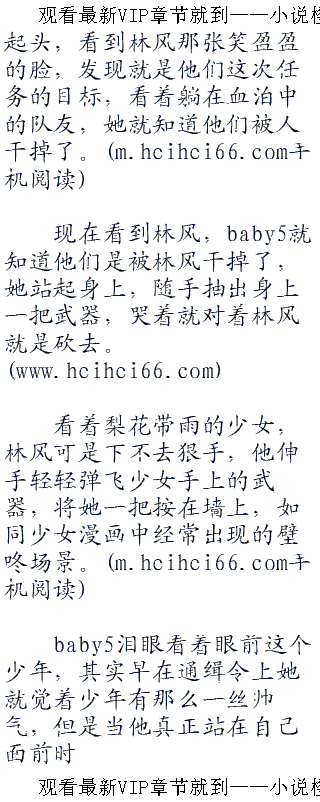 观看最新VIP章节就到——小说检
起头，看到林风那张笑盈盈
的脸，发现就是他们这次任
务的目标，看着躺在血泊中
的队友，她就知道他们被人
干掉了。(m.hcihci66.com手
机阅读)
现在看到林风，baby5就
知道他们是被林风干掉了，
她站起身上，随手抽出身上
一把武器，哭着就对着林风
就是砍去。
(www.hcihci66.com)
看着梨花带雨的少女，
林风可是下不去狠手，他伸
手轻轻弹飞少女手上的武
器，将她一把按在墙上，如
同少女漫画中经常出现的壁
咚场景。(m.hcihci66.com手
机阅读)
baby5泪眼看着眼前这个
少年，其实早在通缉令上她
就觉着少年有那么一丝帅
气，但是当他真正站在自己
面前时
观看最新VIP章节就到——小说检